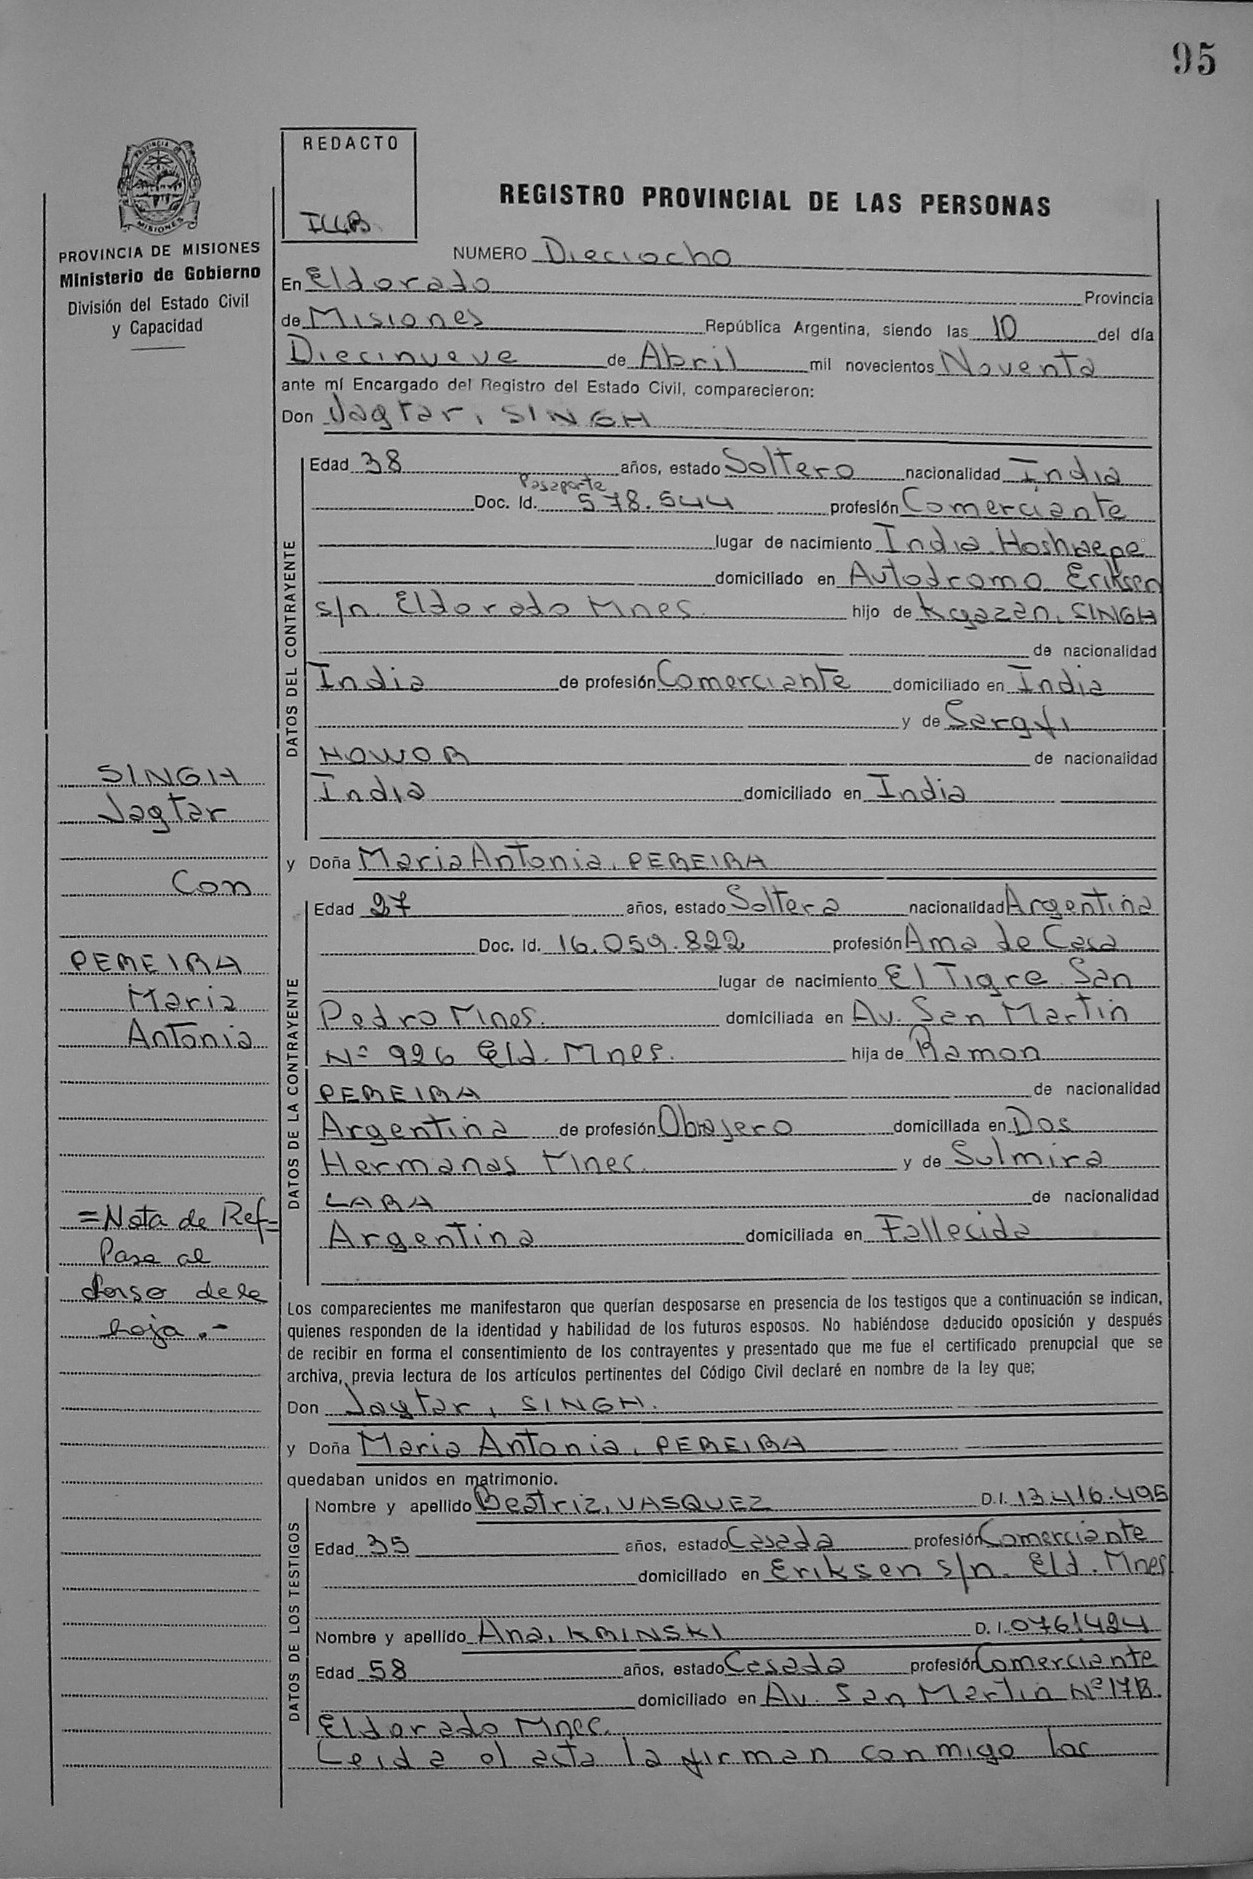 95
REDACTO
REGISTRO PROVINCIAL DE LAS PERSONAS
PROVINCIA DE MISIONES
Ministerio de Gobierno
División del Estado Civil
y Capacidad
NUMERO Dieciocho
En Eldorado Provincia
de Misiones República Argentina, siendo las 10 del día
Diecinueve de Abril mil novecientos Noventa
ante mí Encargado del Registro del Estado Civil, comparecieron:
Don Jagtar, SINGH
DATOS DEL CONTRAYENTE
Edad 38 años, estado Soltero nacionalidad India
Pasaporte
Doc. Id. 578.544 profesión Comerciante
lugar de nacimiento India
domiciliado en Autodromo Eriksen
s/n. Eldorado Mnes. hijo de SINGH
de nacionalidad
India de profesión Comerciante domiciliado en India
y de
de nacionalidad
India domiciliado en India
SINGH
Jagtar
Con
PEREIRA
Maria
Antonia
y Doña Maria Antonia, PEREIRA
DATOS DE LA CONTRAYENTE
Edad 27 años, estado Soltera nacionalidad Argentina
Doc. Id. 16.059.822 profesión Ama de Casa
lugar de nacimiento El Tigre San
Pedro Mnes. domiciliada en Av. San Martin
Nº 926 Eld. Mnes. hija de Ramon
PEREIRA de nacionalidad
Argentina de profesión Obrajero domiciliada en Dos
Hermanas Mnes. y de Sulmira
LARA de nacionalidad
Argentina domiciliada en Fallecida
=Nota de Ref=
Pasa al
dorso de la
hoja.-
Los comparecientes me manifestaron que querían desposarse en presencia de los testigos que a continuación se indican,
quienes responden de la identidad y habilidad de los futuros esposos. No habiéndose deducido oposición y después
de recibir en forma el consentimiento de los contrayentes y presentado que me fue el certificado prenupcial que se
archiva, previa lectura de los artículos pertinentes del Código Civil declaré en nombre de la ley que;
Don Jagtar, SINGH.
y Doña Maria Antonia, PEREIRA
quedaban unidos en matrimonio.
DATOS DE LOS TESTIGOS
Nombre y apellido Beatriz, VASQUEZ D.I. 13.416.495
Edad 35 años, estado Casada profesión Comerciante
domiciliado en Eriksen s/n. Eld. Mnes
Nombre y apellido Ana, KRINSKI D.I. 0761424
Edad 58 años, estado Casada profesión Comerciante
domiciliado en Av. San Martin Nº
Eldorado Mnes.
Leida el acta la firman conmigo los